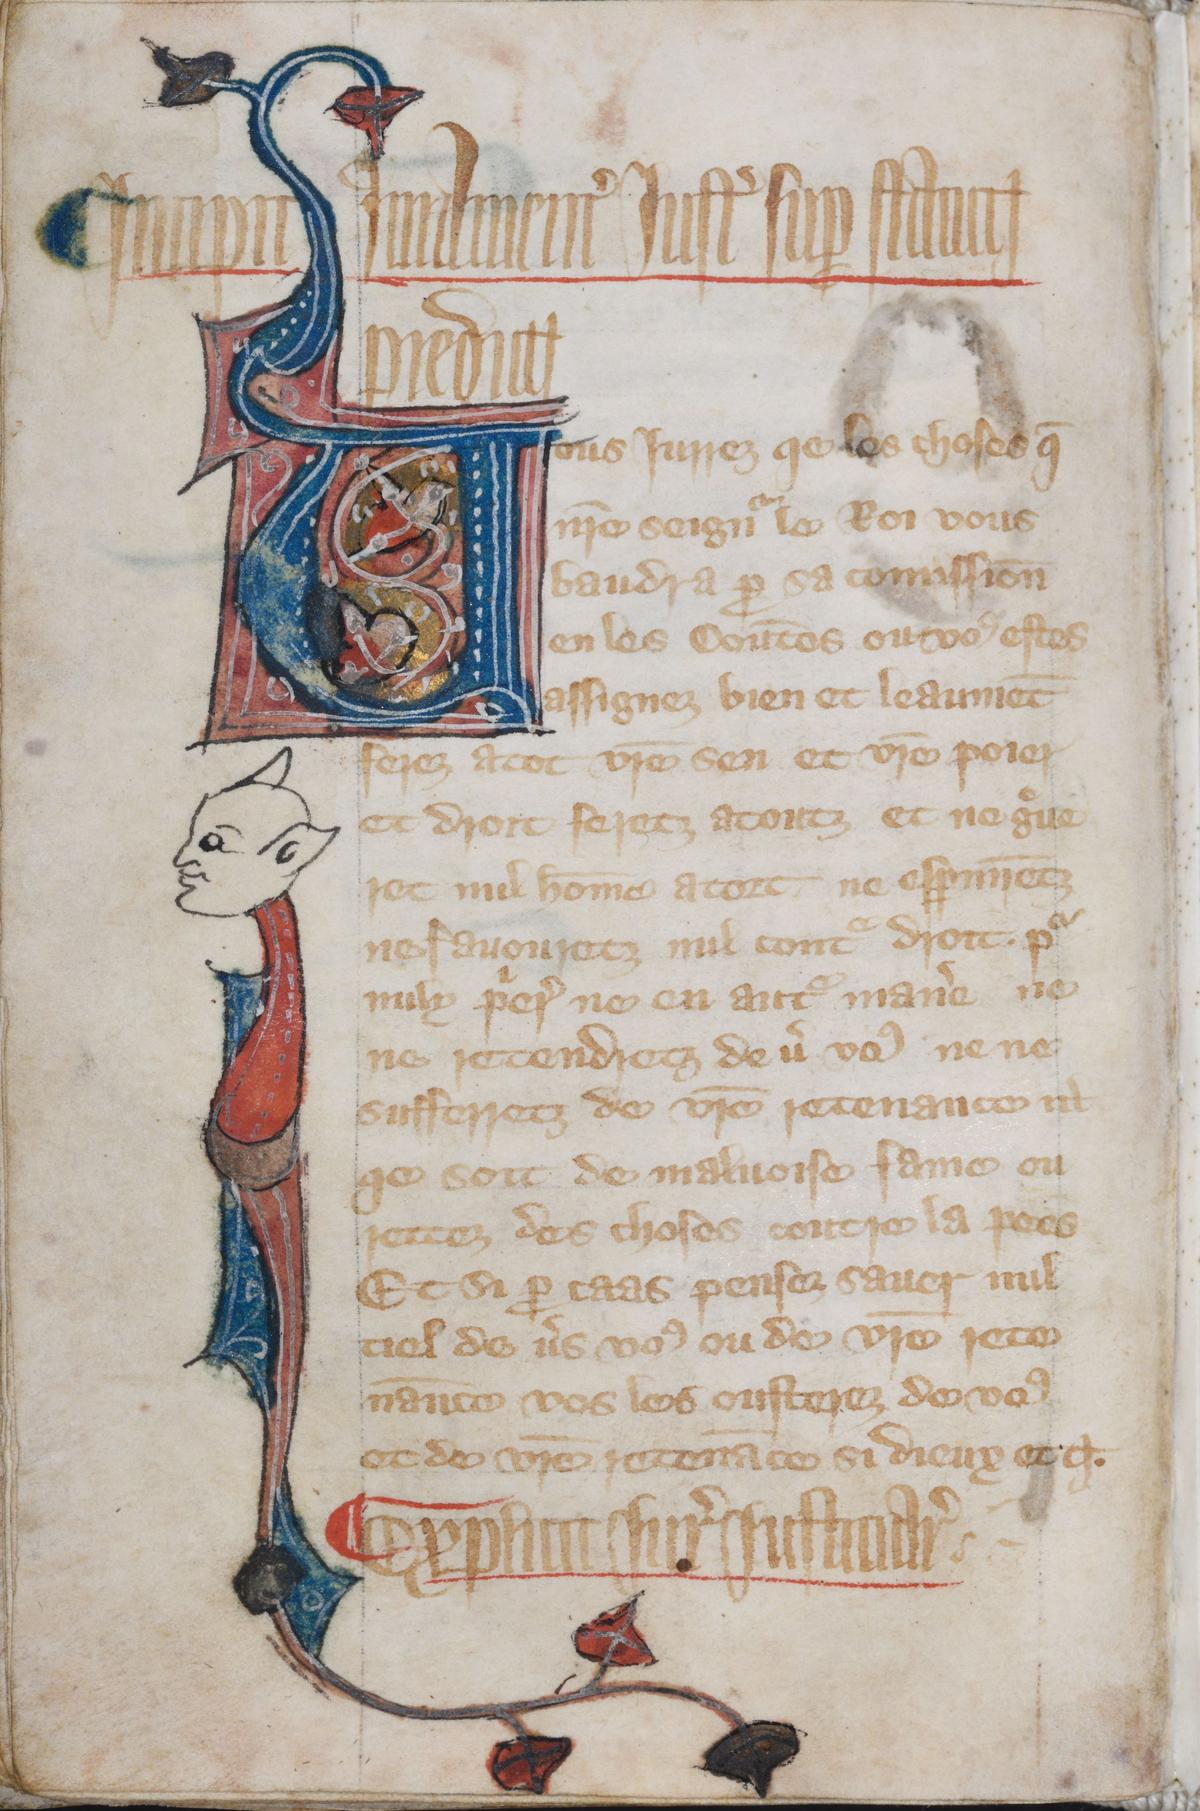 Incipit Iurament' Iust' sup' statut'
predict'
Vous Iurrez qe les choses q̄
nr̄e seignur le Roi vous
baudra p̱ sa com̄ission
en les Countees ou vo⁹ estes
assignez bien et leaument̄
ferez atot vr̄e sen et vr̄e poier
et droit feretz atoutz et ne g°ue
ret nul hom̄e atort ne esp̱nir̄etz
ne favouretz nul cont^e droit. p^r
nuly p^ier' ne en aut^e man̄e ne
ne retendretz de v' vo⁹ ne ne
sufferretz de vr̄e retenance nl̄
qe soit de malvoise fame ou
rettez des choses contre la pees
Et si p̱ caas pensez saver nul
tiel de v's vo⁹ ou de vr̄e rete
nāuce vos les ousterez de vo⁹
et de vr̄e retenāce si dieux et c̄.
Explicit Iur' Iusticiar'